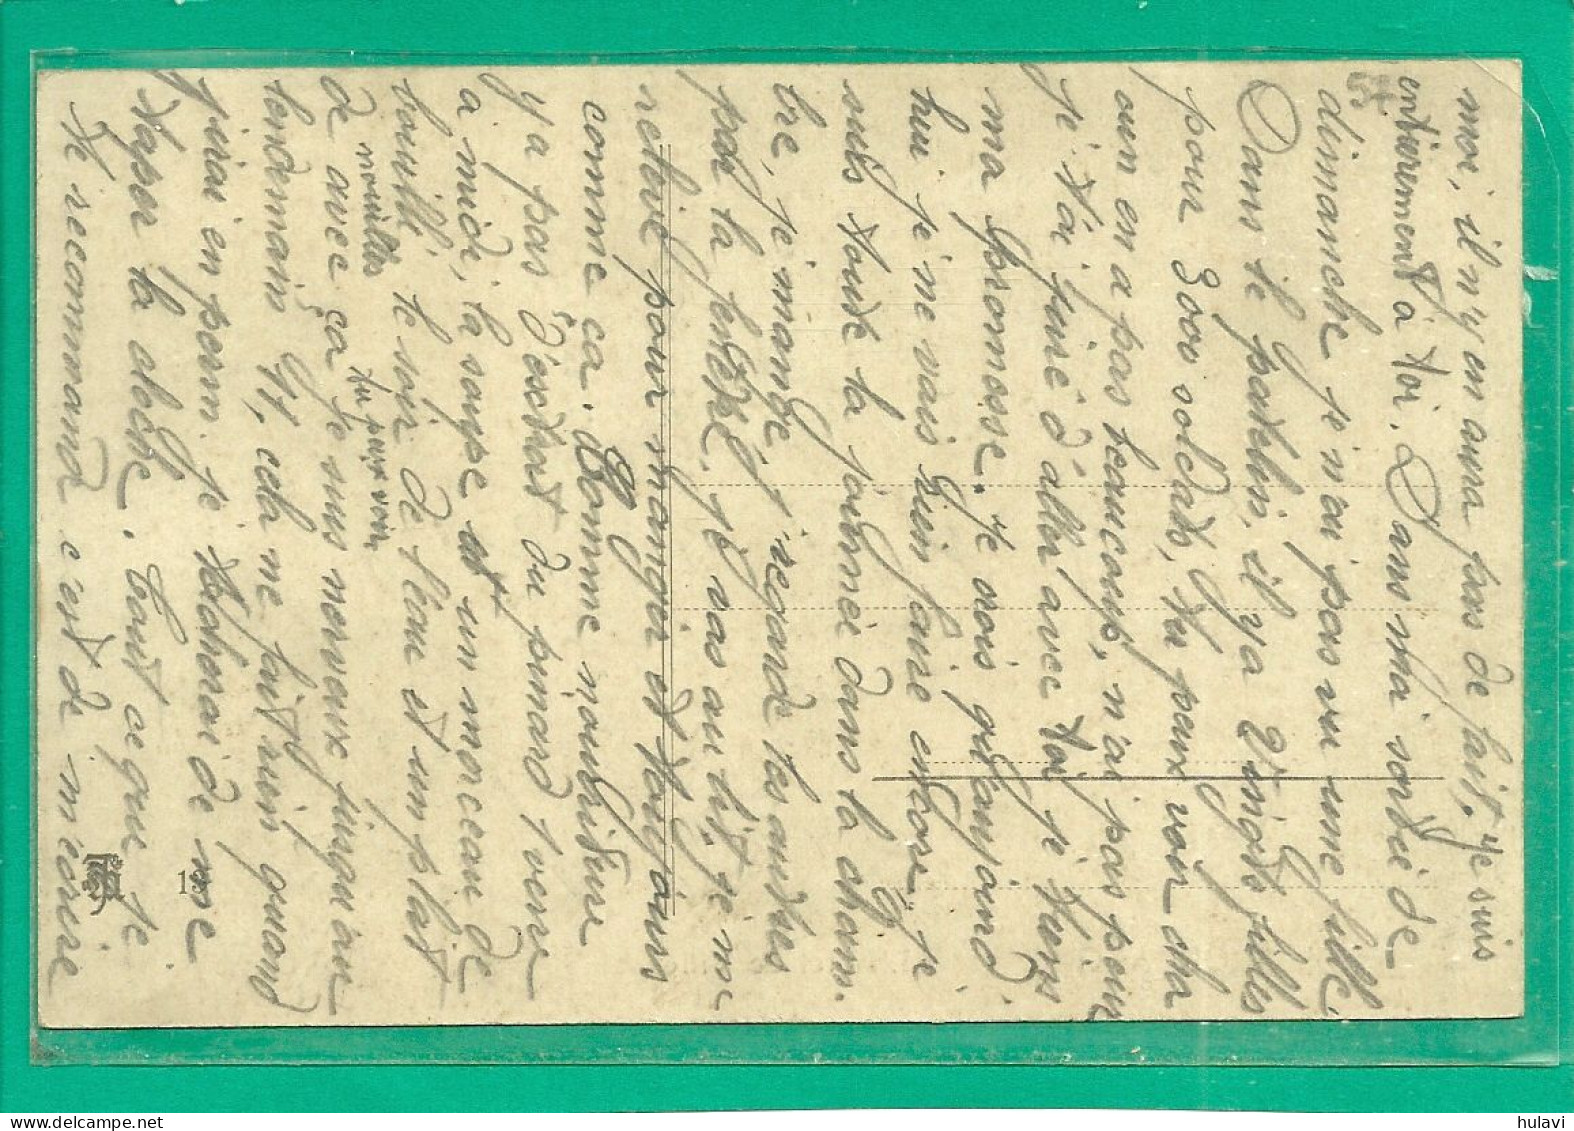 moi, il n'y en aura pas de fait. Je suis
entièrement à toi. Dans ma sortie de
dimanche je n'ai pas vu une fille.
Dans le patelin, il y a vingt filles
pour 3000 soldats, tu peux voir cha
cun en a pas beaucoup, n'ai pas peur
je t'ai juré d'aller avec toi je tiens
ma promesse. Je crois qu'aujourd
hui je ne vais rien faire encore, je
suis toute la journée dans la cham-
bre, je mange, je regarde les autres
par la fenêtre. Je vas au lit, je me
relève pour manger et toujours
comme ça. Comme nourriture
y a pas d'escès du pinard 1 verre
à midi, la soupe et un morceau de
bouillé, le soir de l'eau et un plat
de nouilles
avec ça je suis nerveux jusqu'au
tu peux voir
lendemain 4h, cela ne fait rien quand
j'irai en perm je tâcherai de me
taper la cloche. Tout ce que je
te recommand c'est de m'écrire
57
13
hulavi